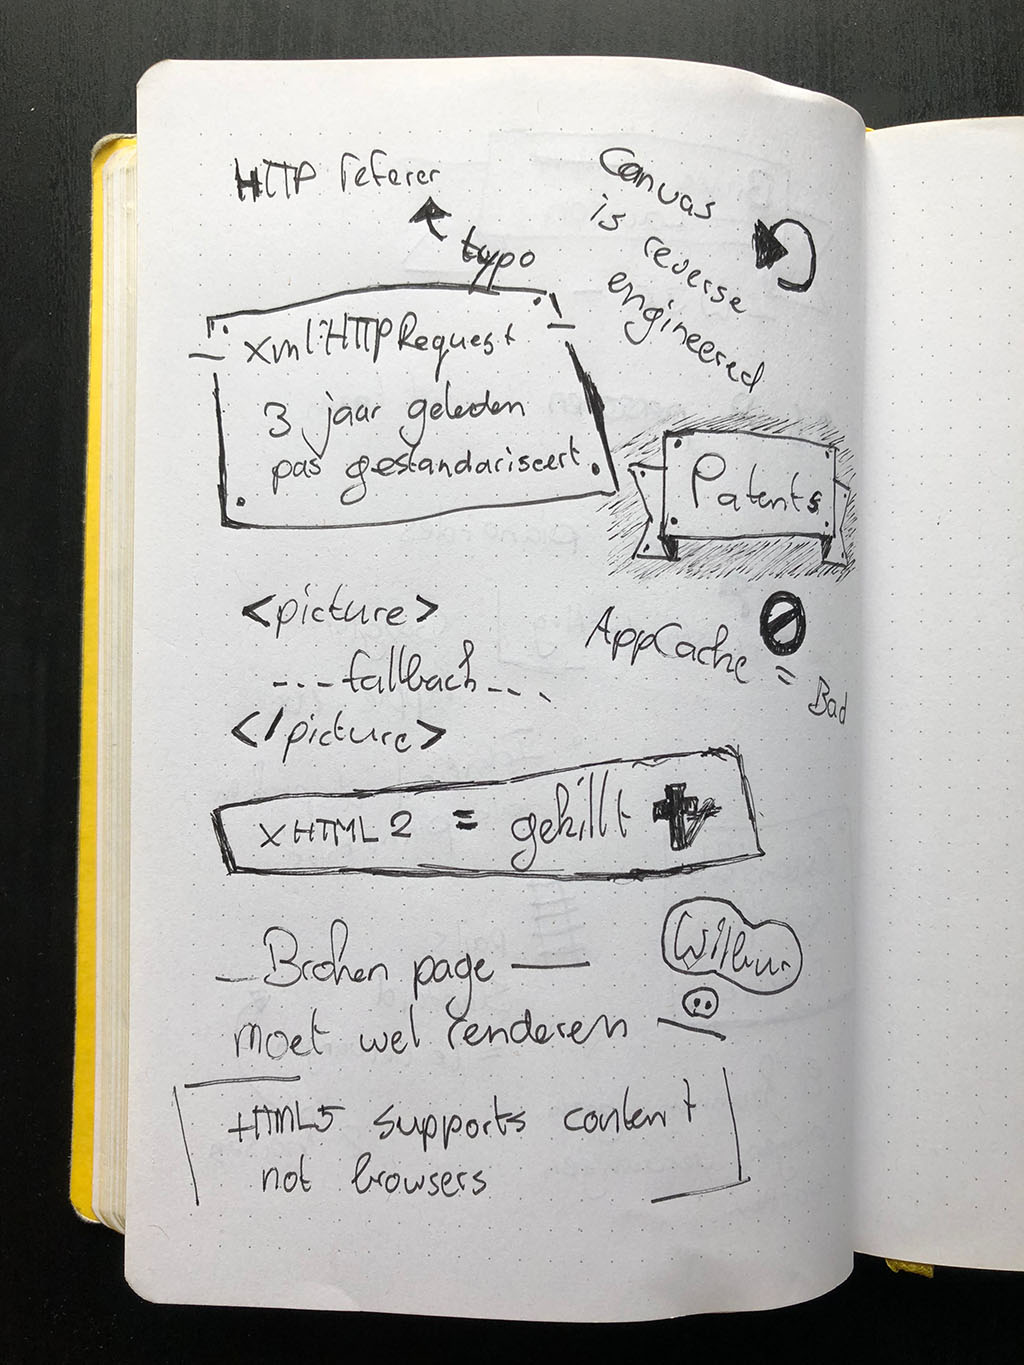 HTTP referer
typo
Canvas
is reverse
engineered
xml:HTTPRequest
3 jaar geleden
pas gestandariseert
Patents
<picture>
---fallback---
</picture>
AppCache
= Bad
xHTML2 = gekillt
Broken page
moet wel renderen
HTML5 supports content
not browsers